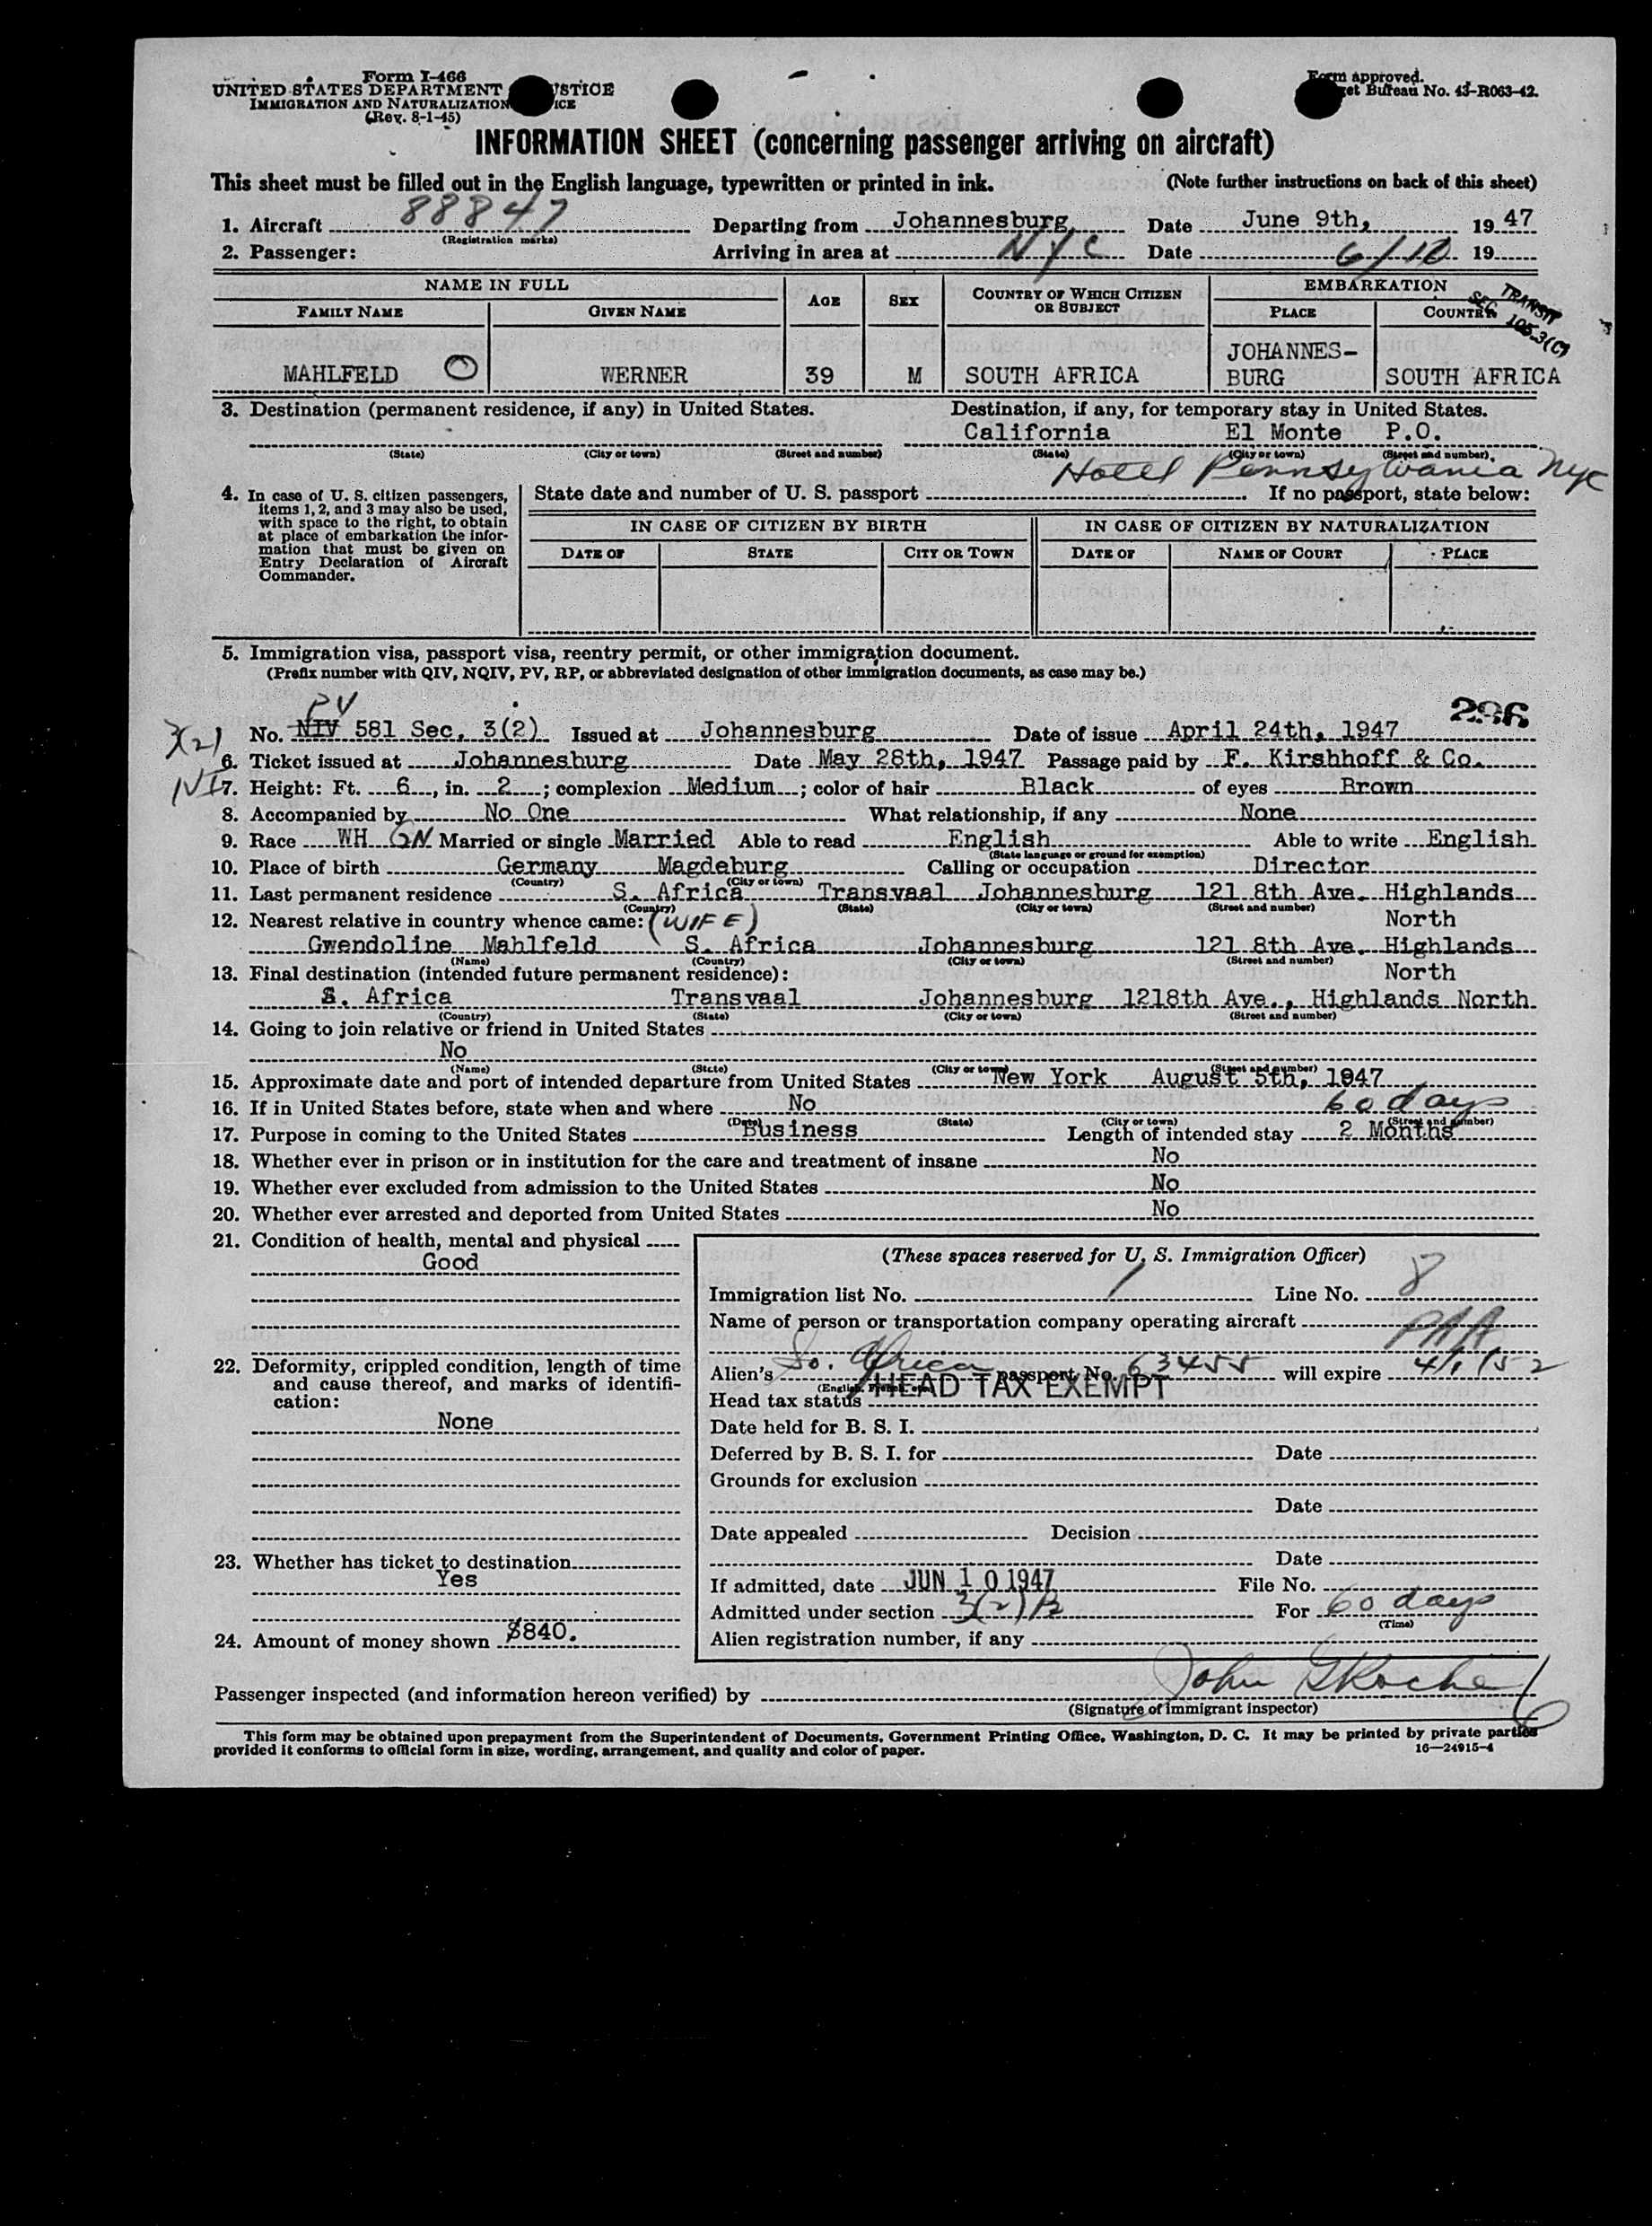 Form I-466
UNITED STATES DEPARTMENT STICE
IMMIGRATION AND NATURALIZATION ICE
(Rev. 8-1-45)
Form approved.
et Bureau No. 43-R063-42.
INFORMATION SHEET (concerning passenger arriving on aircraft)
This sheet must be filled out in the English language, typewritten or printed in ink. (Note further instructions on back of this sheet)
1. Aircraft 88847 Departing from Johannesburg, Date June 9th, 1947
(Registration marks)
2. Passenger: Arriving in area at NYC Date 6/10 19
NAME IN FULL AGE SEX COUNTRY OF WHICH CITIZEN OR SUBJECT EMBARKATION
FAMILY NAME GIVEN NAME PLACE COUNTRY
TRANSIT
SEC. 105.3(C)
MAHLFELD WERNER 39 M SOUTH AFRICA JOHANNES-BURG SOUTH AFRICA
3. Destination (permanent residence, if any) in United States. Destination, if any, for temporary stay in United States.
California El Monte P.O.
(State) (City or town) (Street and number) (State) (City or town) (Street and number)
Hotel Pennsylvania NYC
4. In case of U. S. citizen passengers, items 1, 2, and 3 may also be used, with space to the right, to obtain at place of embarkation the information that must be given on Entry Declaration of Aircraft Commander.
State date and number of U. S. passport If no passport, state below:
IN CASE OF CITIZEN BY BIRTH IN CASE OF CITIZEN BY NATURALIZATION
DATE OF STATE CITY OR TOWN DATE OF NAME OF COURT PLACE
5. Immigration visa, passport visa, reentry permit, or other immigration document.
(Prefix number with QIV, NQIV, PV, RP, or abbreviated designation of other immigration documents, as case may be.)
PV
296
3(2)
No. NIV 581 Sec. 3(2) Issued at Johannesburg Date of issue April 24th, 1947
6. Ticket issued at Johannesburg Date May 28th, 1947 Passage paid by F. Kirshhoff & Co.
7. Height: Ft. 6, in. 2; complexion Medium; color of hair Black of eyes Brown
8. Accompanied by No One What relationship, if any None
9. Race WH GN Married or single Married Able to read English Able to write English
(State language or ground for exemption)
10. Place of birth Germany Magdeburg Calling or occupation Director
(Country) (City or town)
11. Last permanent residence S. Africa Transvaal Johannesburg 121 8th Ave. Highlands
(Country) (State) (City or town) (Street and number)
North
12. Nearest relative in country whence came: (WIFE)
Gwendoline Mahlfeld S. Africa Johannesburg 121 8th Ave. Highlands
(Name) (Country) (City or town) (Street and number)
North
13. Final destination (intended future permanent residence):
S. Africa Transvaal Johannesburg 1218th Ave., Highlands North
(Country) (State) (City or town) (Street and number)
14. Going to join relative or friend in United States
No
(Name) (State) (City or town) (Street and number)
15. Approximate date and port of intended departure from United States New York August 5th, 1947
16. If in United States before, state when and where No 60 days
(Date) (State) (City or town) (Street and number)
17. Purpose in coming to the United States Business Length of intended stay 2 Months
18. Whether ever in prison or in institution for the care and treatment of insane No
19. Whether ever excluded from admission to the United States No
20. Whether ever arrested and deported from United States No
21. Condition of health, mental and physical
Good
22. Deformity, crippled condition, length of time and cause thereof, and marks of identification:
None
23. Whether has ticket to destination
Yes
24. Amount of money shown $840.
(These spaces reserved for U. S. Immigration Officer)
Immigration list No. 1 Line No. 8
Name of person or transportation company operating aircraft PAA
Alien's So. Africa passport No. 63455 will expire 4/1/52
(English, French, etc.)
Head tax status HEAD TAX EXEMPT
Date held for B. S. I.
Deferred by B. S. I. for Date
Grounds for exclusion
Date
Date appealed Decision
Date
If admitted, date JUN 10 1947 File No.
Admitted under section 3(2)B For 60 days
(Time)
Alien registration number, if any
Passenger inspected (and information hereon verified) by John
(Signature of immigrant inspector)
This form may be obtained upon prepayment from the Superintendent of Documents, Government Printing Office, Washington, D. C. It may be printed by private parties
provided it conforms to official form in size, wording, arrangement, and quality and color of paper. 16—24915-4